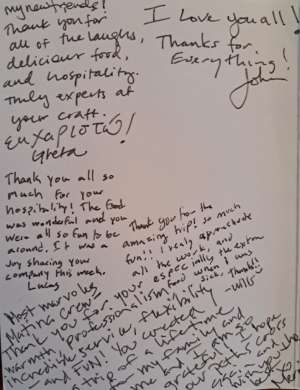 my new friends!
Thank you for
all of the laughs,
delicious food,
and hospitality.
Truly experts at
your craft.
ευχαριστώ!
Greta
I Love you all!
Thanks for
Everything!
John
Thank you all so
much for your
hospitality! The food
was wonderful and you
were all so fun to be
around. It was a
joy sharing your
company this week.
Lucas
Thank you for the
amazing trip! so much
fun!! I really appreciate
all the work, and
especially the extra
food when I was
sick. Thanks!
-Wills
Most marvelous
Matina Crew,
Thank you for your
warmth, professionalism,
incredible service, flexibility
- and FUN! You created
a trip of a lifetime
for my family and
me and
grateful. I hope
our paths cross